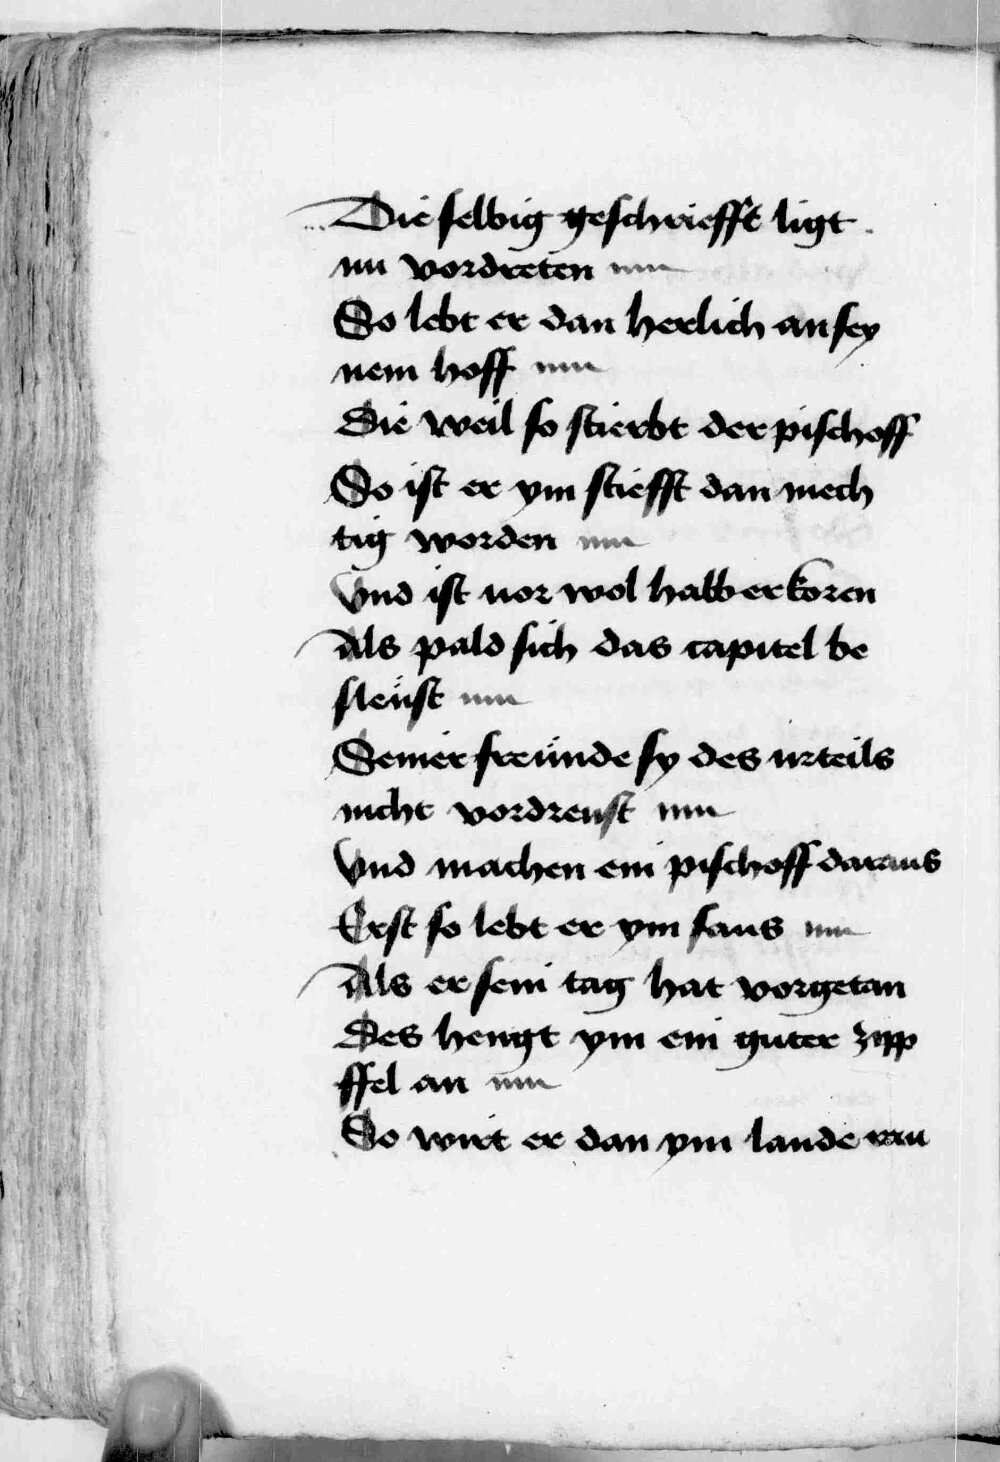 Die selbig geschriefft ligt
nu vordreten
So lebt er dan herlich an sey
nem hoff
Die weil so stierbt der pischoff
So ist er ym stiefft dan mech
tig worden
Vnd ist nor wol halb erkoren
Als pald sich das capitel be
sleüst
Seiner freünde sy des urteils
nicht vordreust
Vnd machen ein pischoff daraus
Erst so lebt er ym saus
Als er sein tag hat vorgetan
Des hengt ym ein guter zipp
ffel an
So wirt er dan ym lande